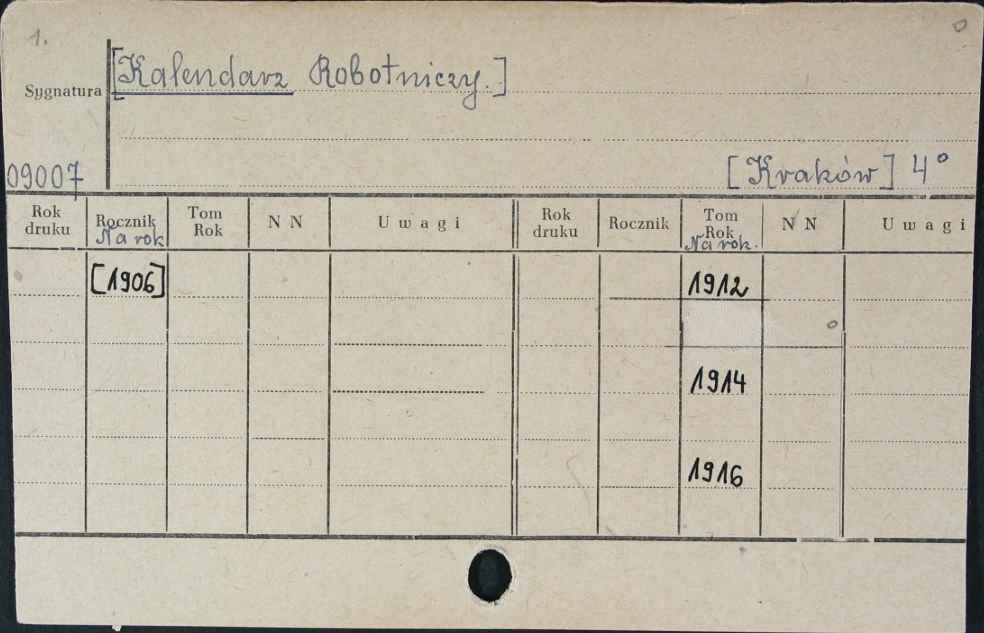 1.
[Kalendarz Robotniczy.]
Sygnatura
09007
[Kraków] 4°
Rok druku Rocznik Na rok Tom Rok N N Uwagi Rok druku Rocznik Tom Rok Na rok. N N Uwagi
[1906] 1912
1914
1916